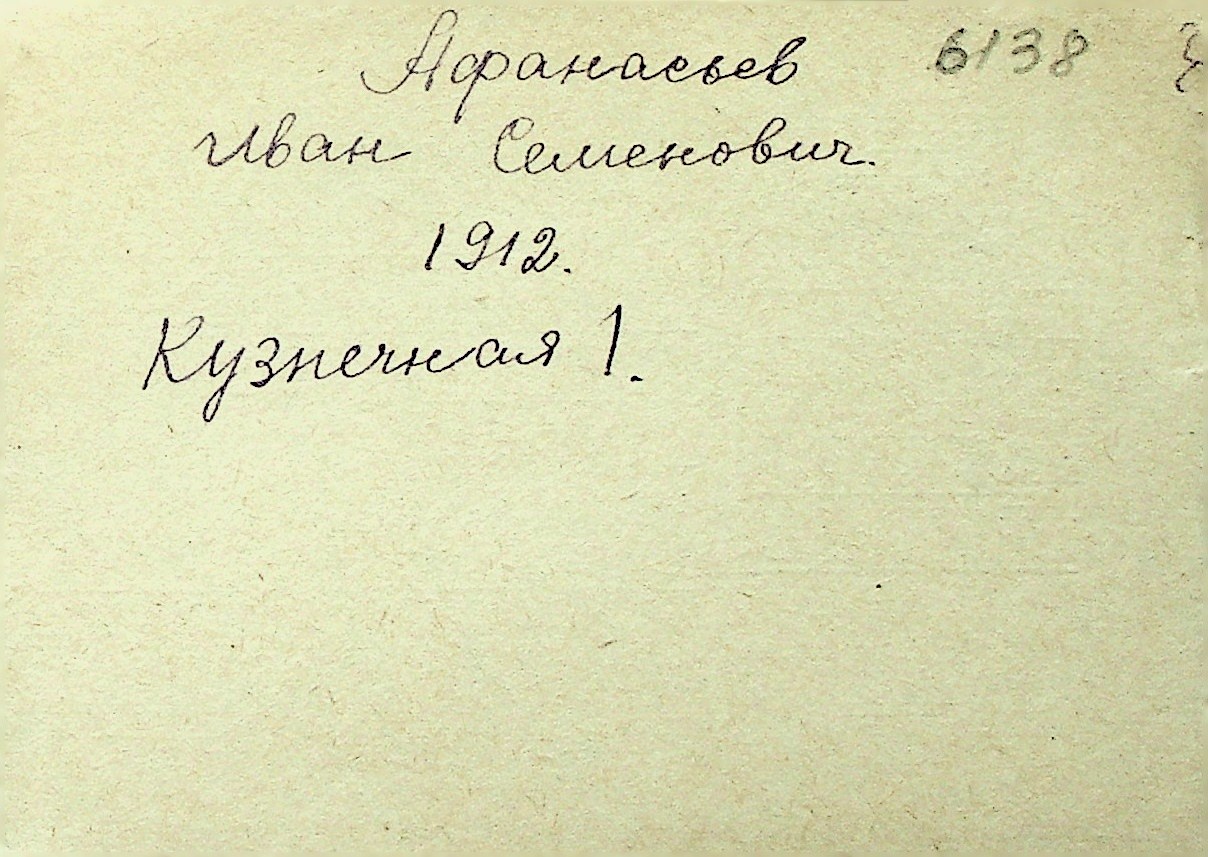 Афанасьев 6138
Иван Семенович.
1912.
Кузнечная 1.